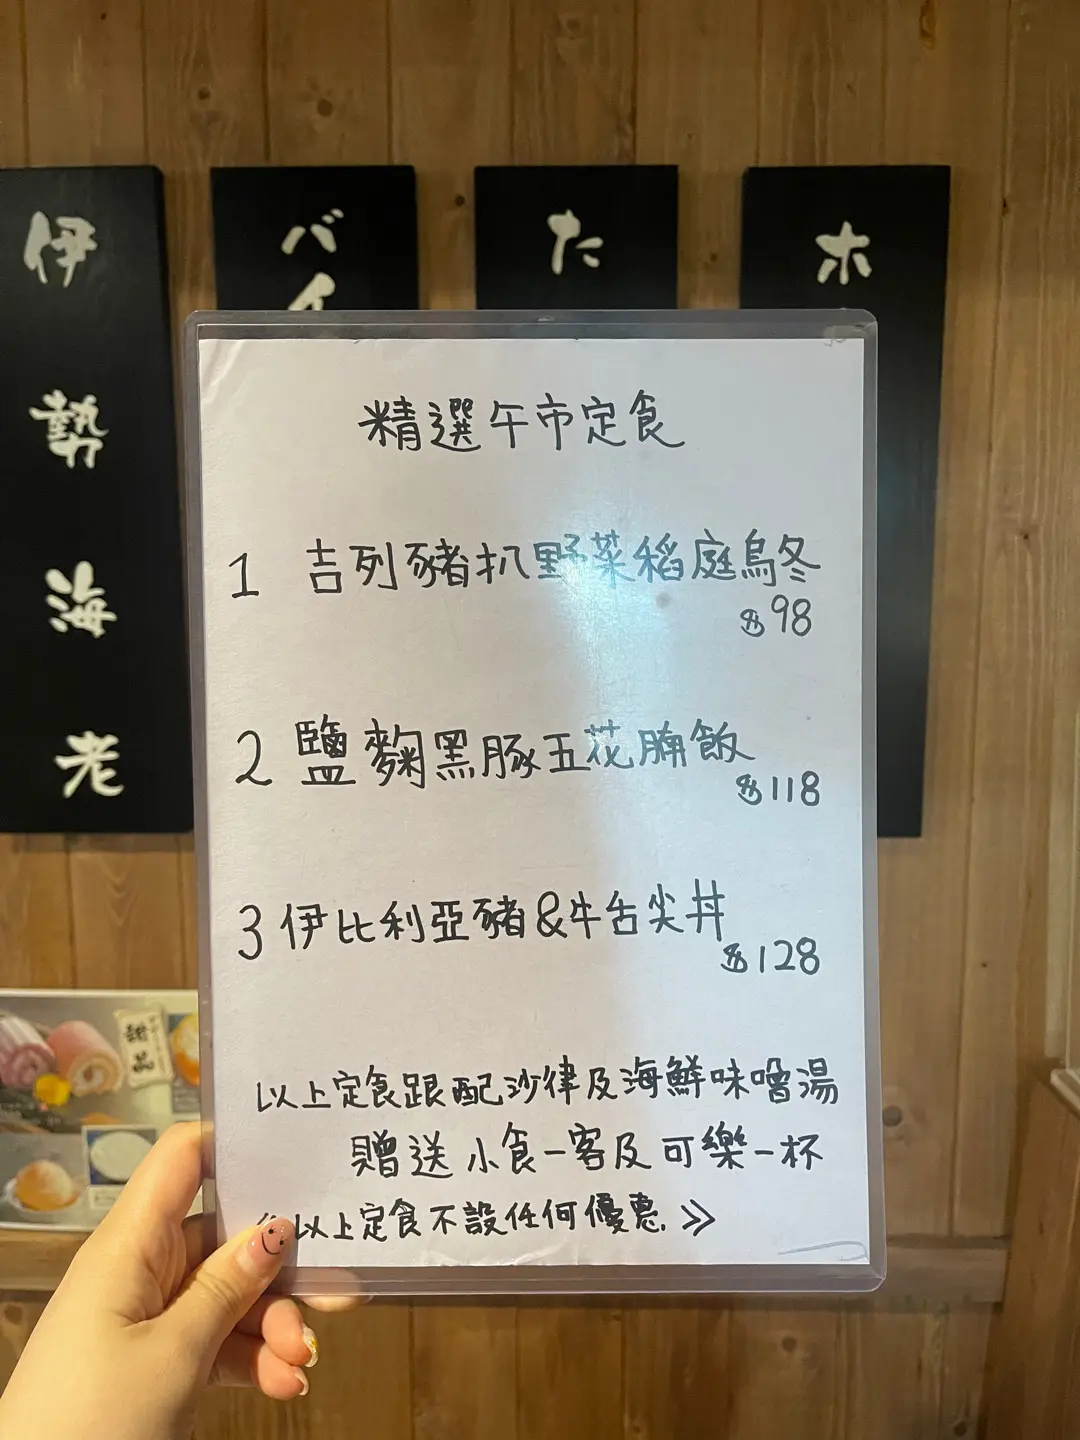 伊勢海老
バイ
た
ホ
精選午市定食
1 吉列豬扒野菜稻庭烏冬
$98
2 鹽麴黑豚五花腩飯
$118
3 伊比利亞豬&牛舌尖丼
$128
以上定食跟配沙律及海鮮味噌湯
贈送小食一客及可樂一杯
以上定食不設任何優惠 》
甜品